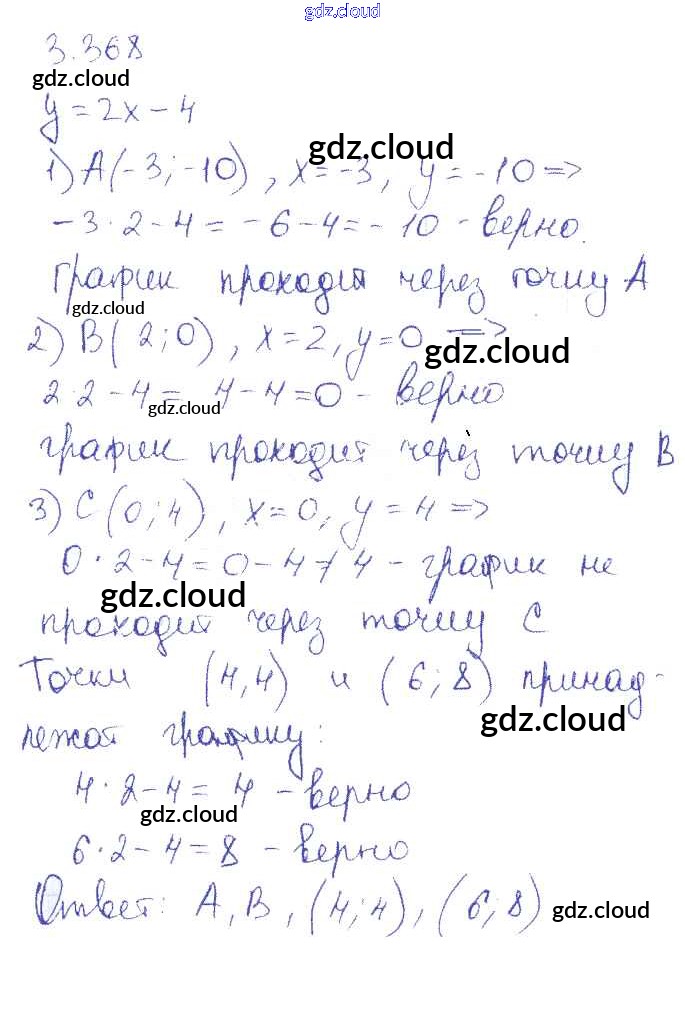 gdz.cloud
3.368
gdz.cloud
y = 2x - 4
gdz.cloud
1) A(-3; -10), x = -3, y = -10 =>
-3 · 2 - 4 = -6 - 4 = -10 - верно.
график проходит через точку A
gdz.cloud
2) B(2; 0), x = 2, y = 0 =>
gdz.cloud
2 · 2 - 4 = 4 - 4 = 0 - верно
gdz.cloud
график проходит через точку B
3) C(0; 4), x = 0, y = 4 =>
0 · 2 - 4 = 0 - 4 ≠ 4 - график не
gdz.cloud
проходит через точку C
Точки (4, 4) и (6; 8) принад-
gdz.cloud
лежат графику:
4 · 2 - 4 = 4 - верно
gdz.cloud
6 · 2 - 4 = 8 - верно
Ответ: A, B, (4; 4), (6; 8)
gdz.cloud